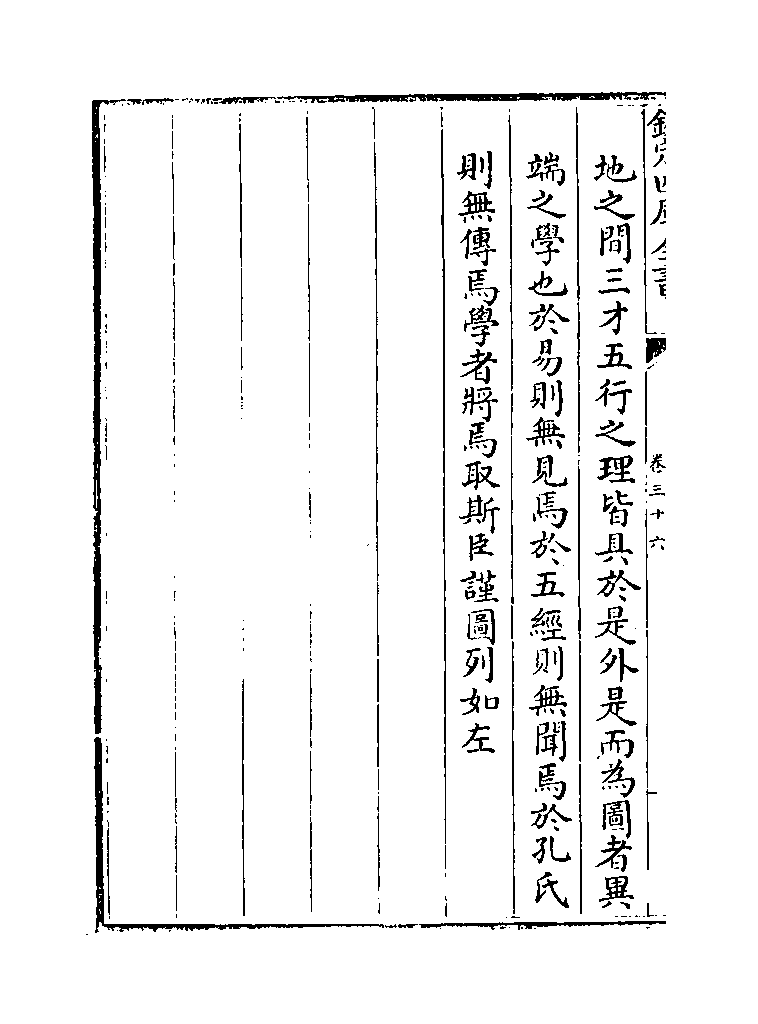 欽定四庫全書
卷三十六
地之間三才五行之理皆具於是外是而為圖者異
端之學也於易則無見焉於五經則無聞焉於孔氏
則無傳焉學者將焉取斯臣謹圖列如左